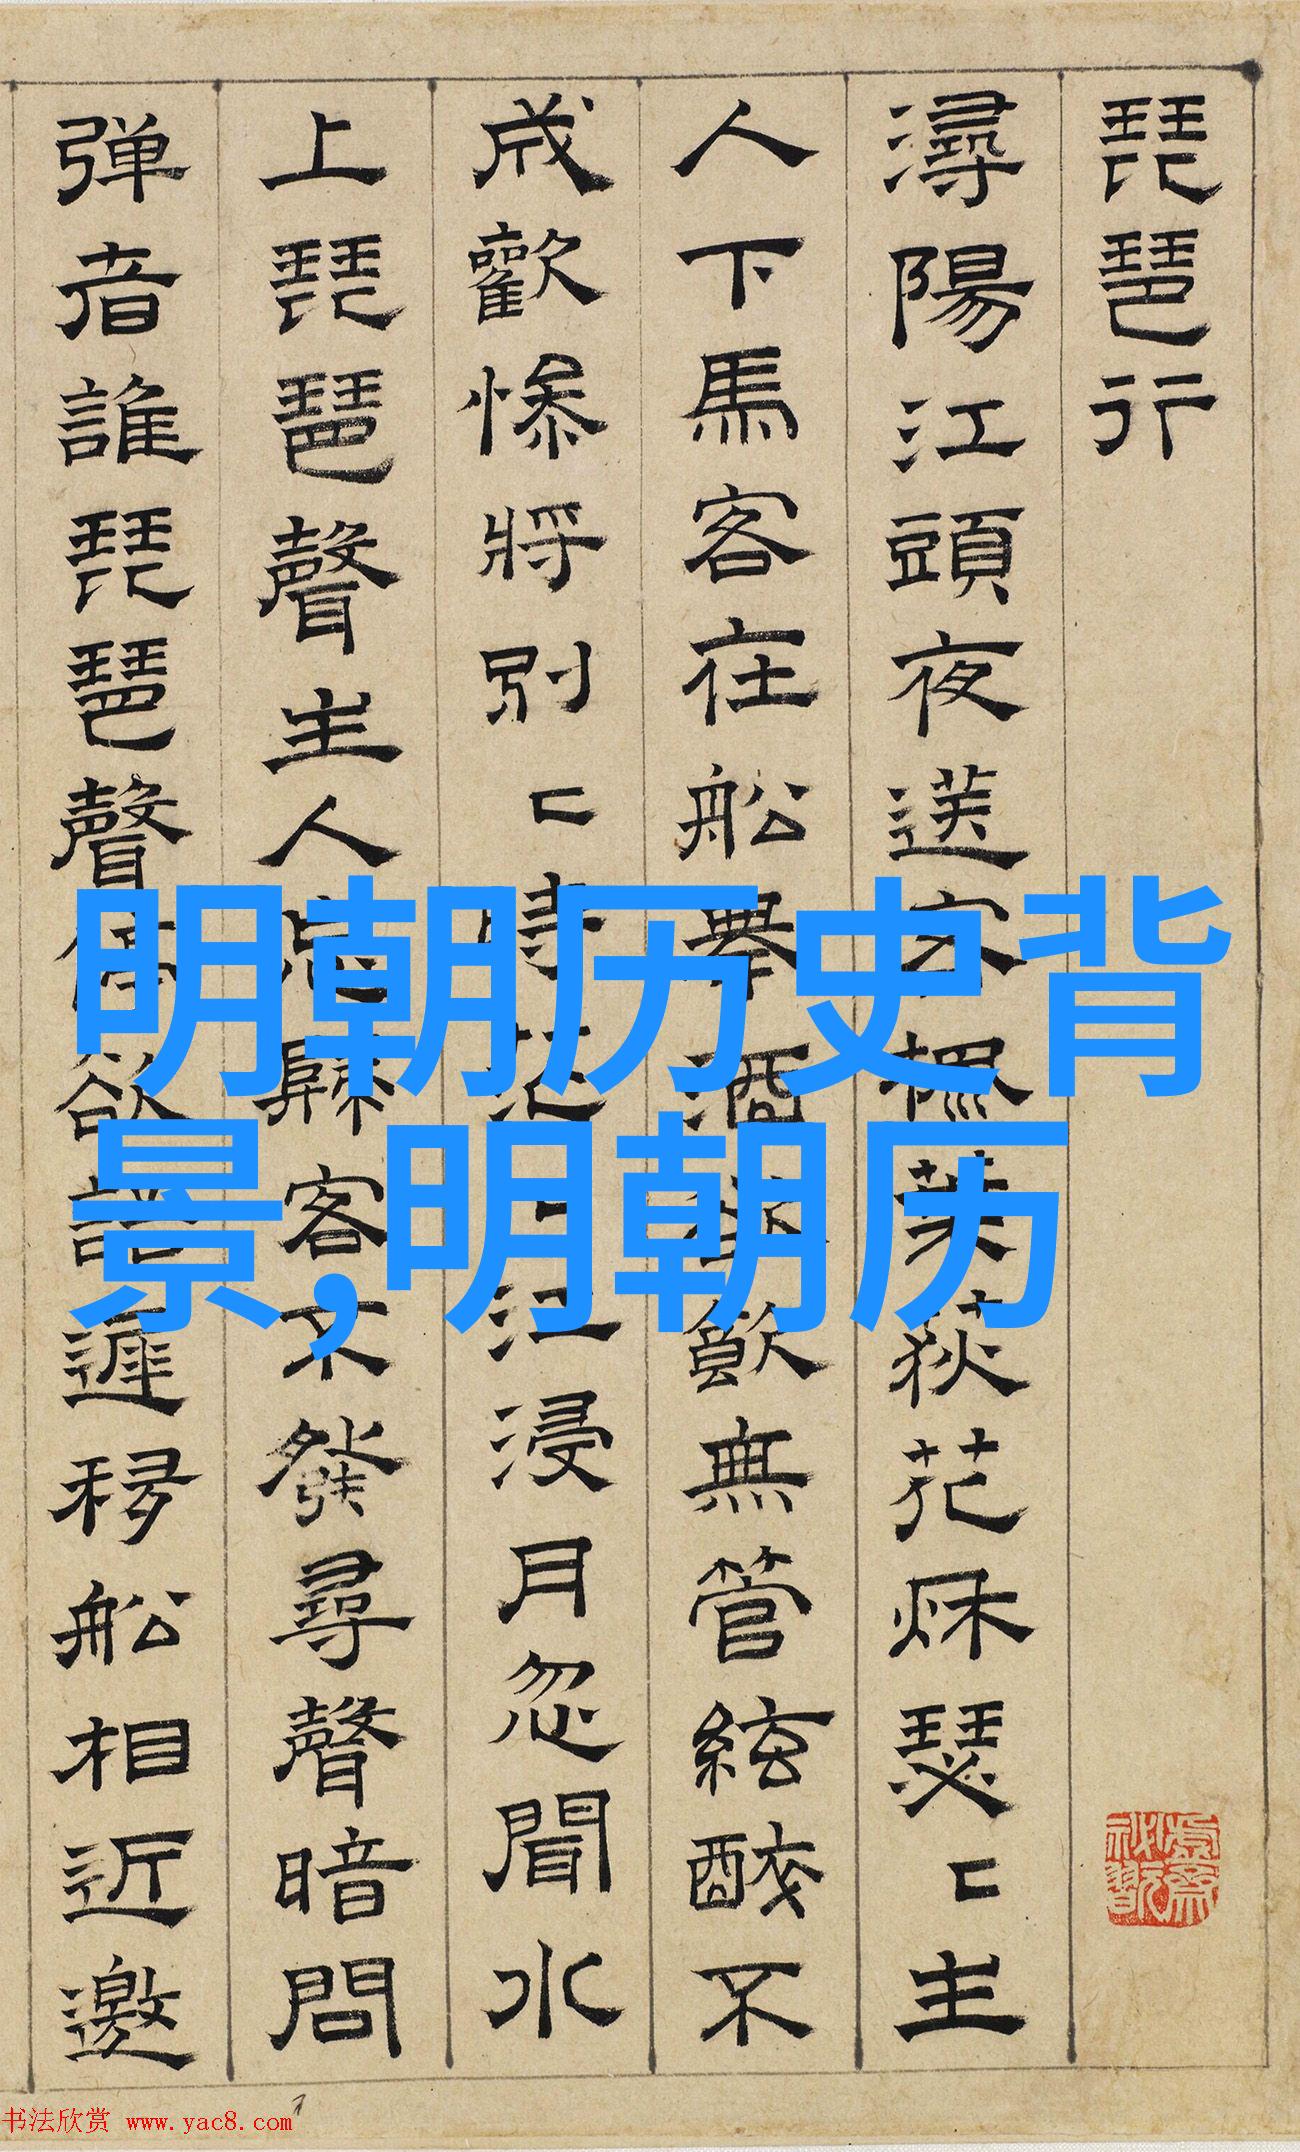 琵琶行
潯陽江頭夜送客楓葉荻花秌瑟〻主
人下馬客在船舉酒欲飲無管絃酸不
成歡慘將別〻時茫〻江浸月忽聞水
上琵琶聲主人忘歸客不發尋聲暗問
弹者誰琵琶聲停欲語遲移船相近邀
明朝历史背
景,明朝历
书法欣赏 www.yac8.com